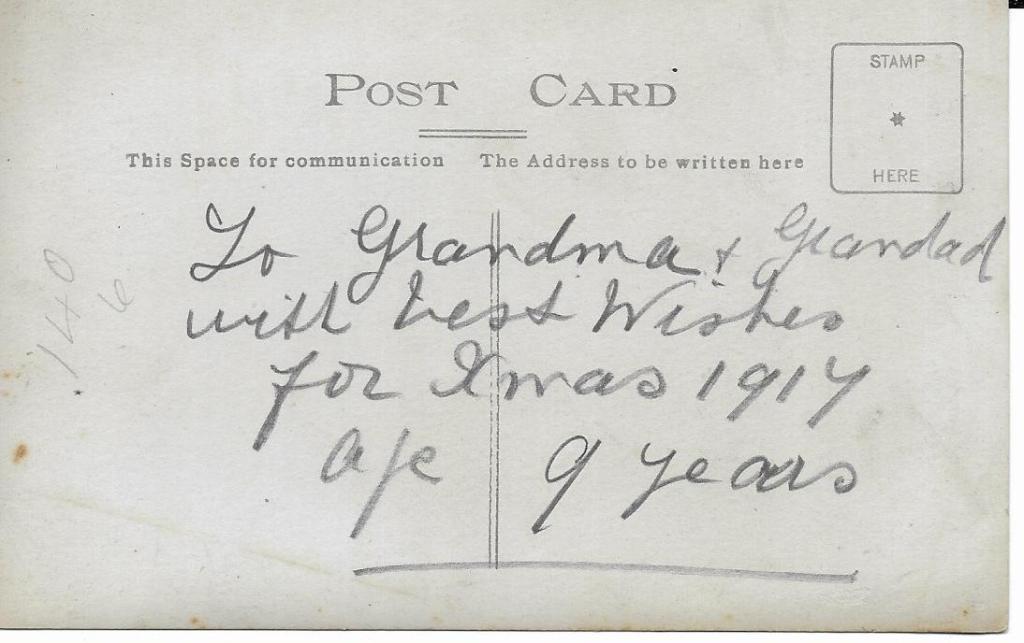 POST CARD
STAMP
HERE
This Space for communication
The Address to be written here
To Grandma & Grandad
with best Wishes
for Xmas 1917
age 9 years
140
6